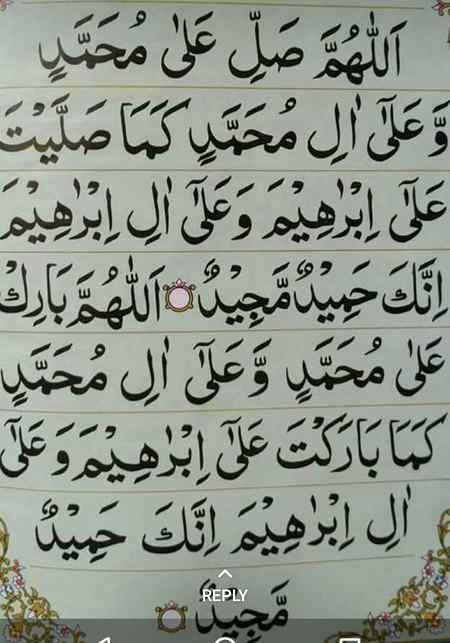 اَللّٰهُمَّ صَلِّ عَلٰى مُحَمَّدٍ
وَّعَلٰٓى اٰلِ مُحَمَّدٍ كَمَا صَلَّيْتَ
عَلٰٓى اِبْرٰهِيْمَ وَعَلٰٓى اٰلِ اِبْرٰهِيْمَ
اِنَّكَ حَمِيْدٌ مَّجِيْدٌ اَللّٰهُمَّ بَارِكْ
عَلٰى مُحَمَّدٍ وَّعَلٰٓى اٰلِ مُحَمَّدٍ
كَمَا بَارَكْتَ عَلٰٓى اِبْرٰهِيْمَ وَعَلٰٓى
اٰلِ اِبْرٰهِيْمَ اِنَّكَ حَمِيْدٌ
مَّجِيْدٌ
REPLY